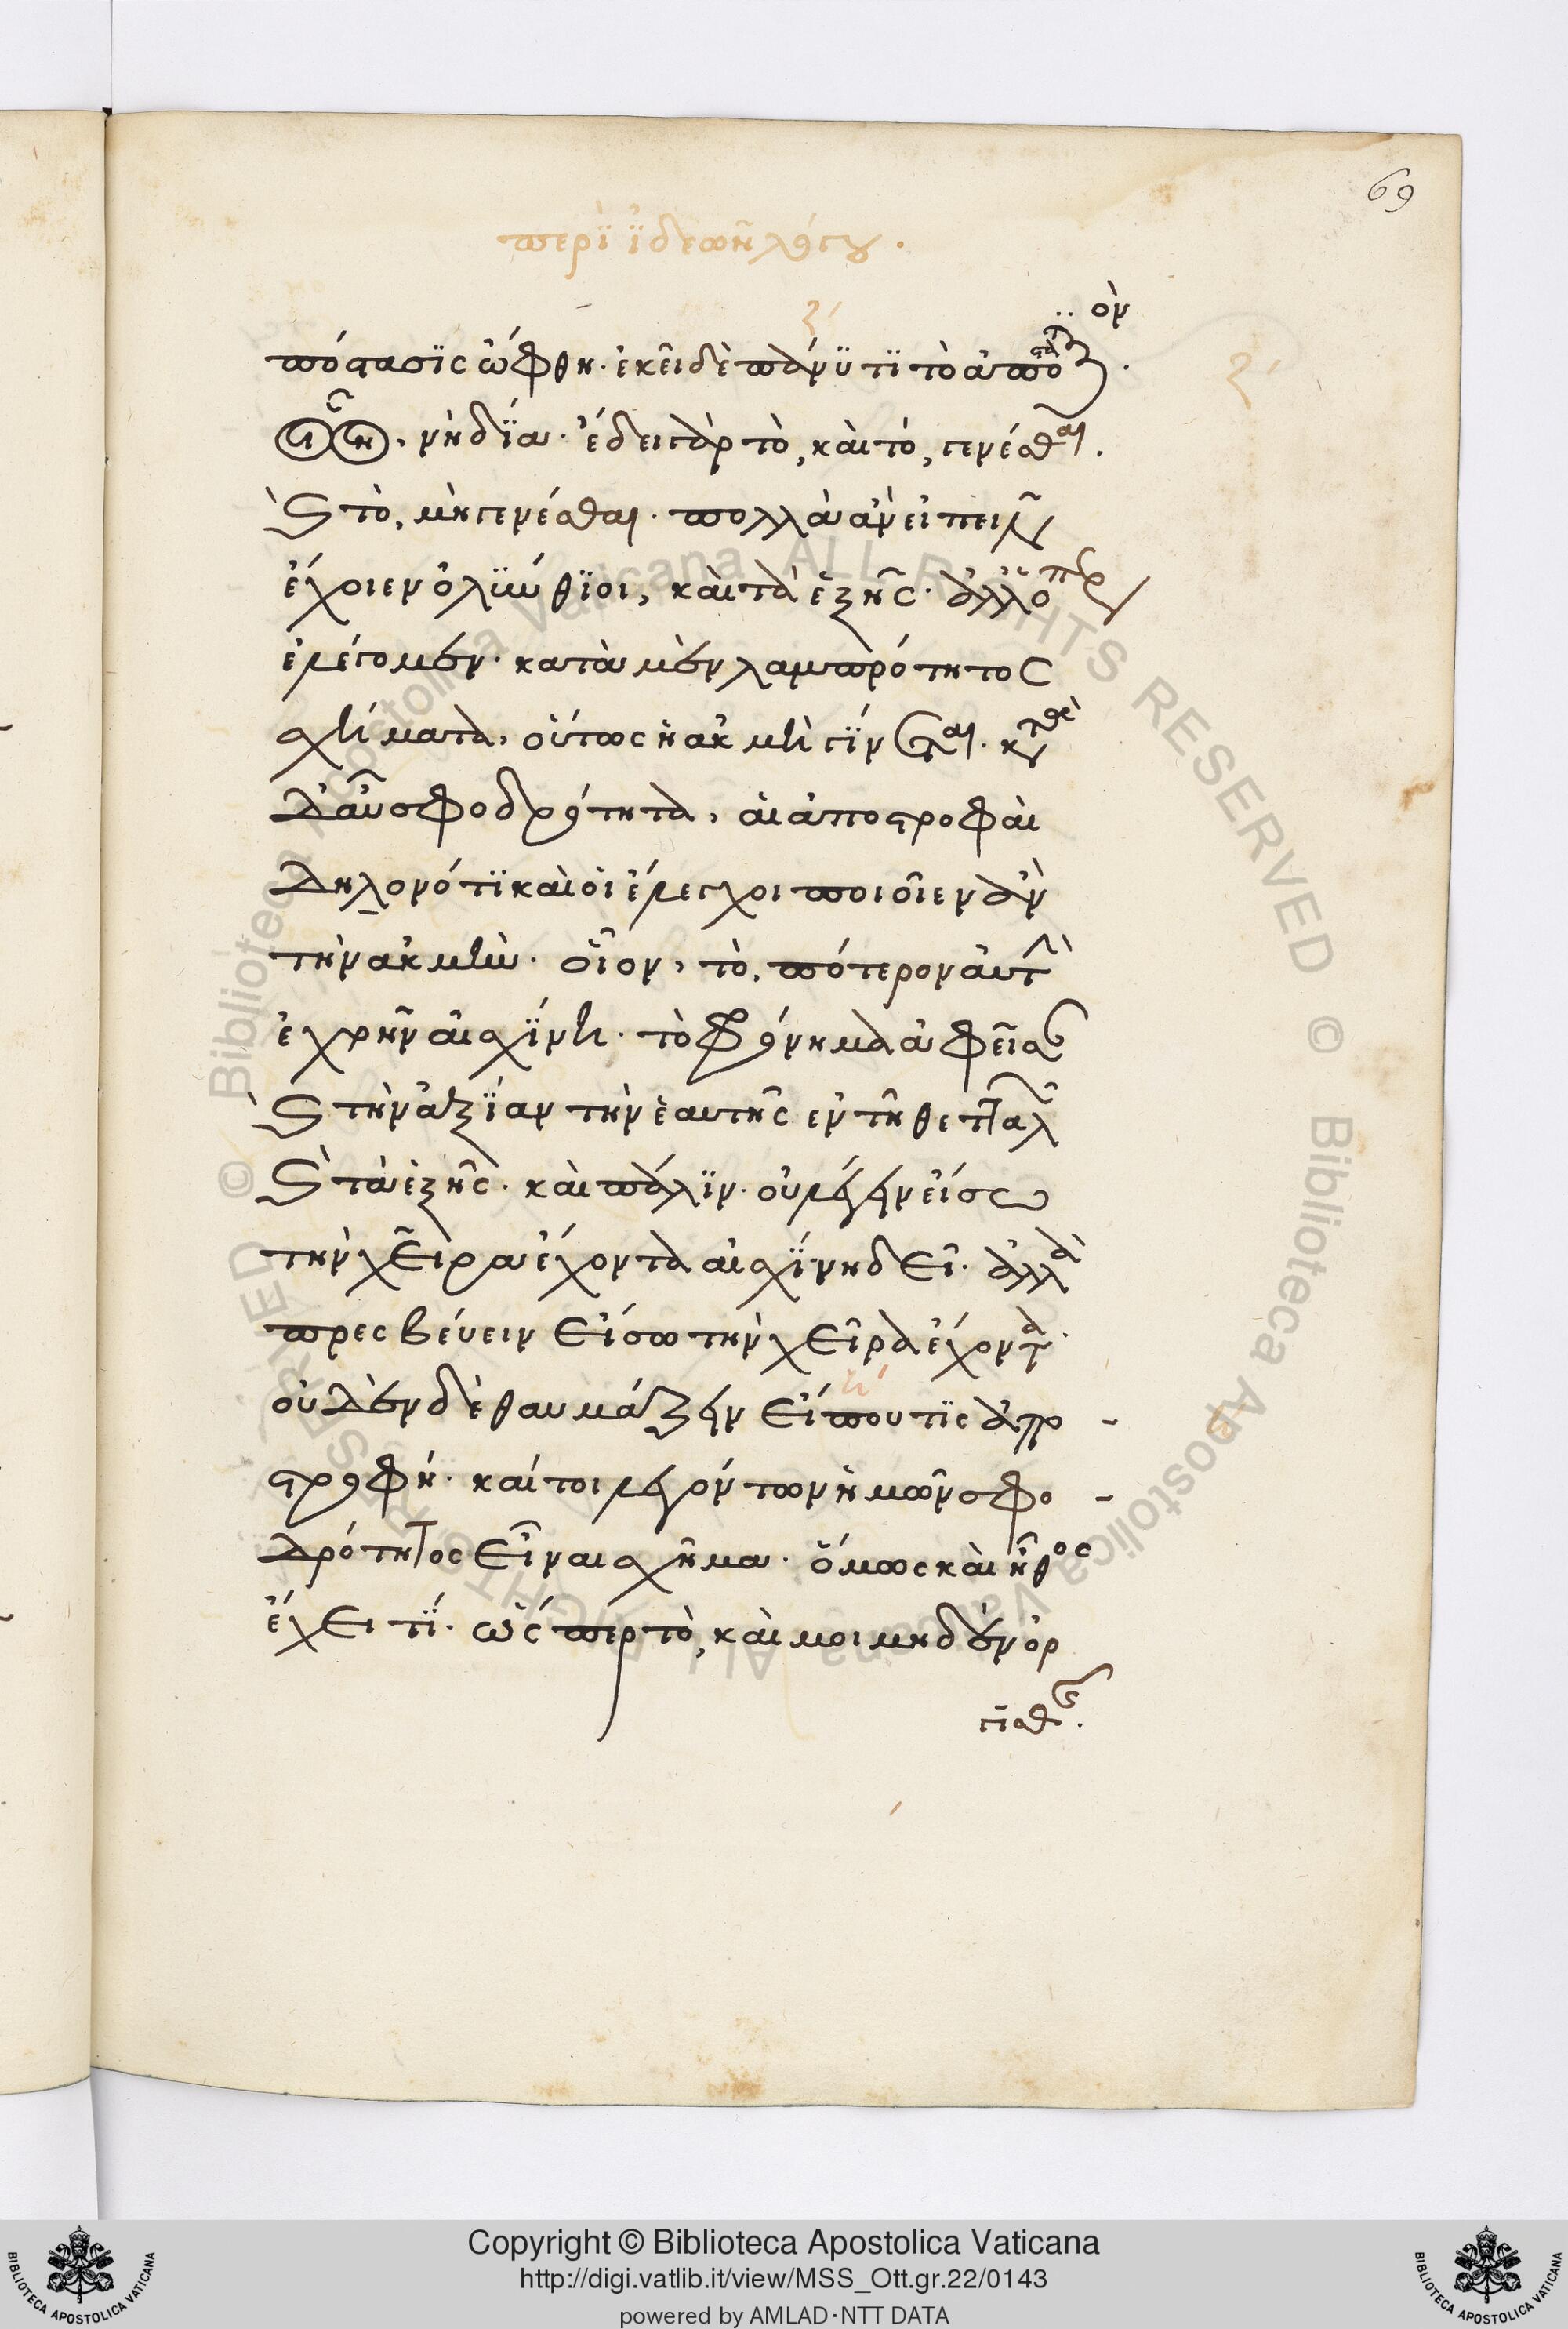 69
περὶ ἰδεῶν λόγου.
πόστασις ὤφθη. ἐκεῖ δὲ πάνυ τι τὸ
νὴ δία. ἔδει γὰρ τὸ, καὶ τό, γενέσθαι.
καὶ τὸ, μὴ γενέσθαι. πολλὰ ἂν εἰπεῖν
ἔχοιεν ὀλύνθιοι, καὶ τὰ ἑξῆς. ἀλλ' ὅπερ
ἐλέγομεν. κατὰ μὲν λαμπρότητος
σχήματα, οὕτως ἡ ἀκμὴ γίνεται. κατὰ δὲ
δ' αὖ σφοδρότητα, αἱ ἀποστροφαὶ
δηλονότι καὶ οἱ ἔλεγχοι ποιοῖεν ἂν
τὴν ἀκμήν. οἷον, τὸ, πότερον αὐτὴν
ἐχρῆν αἰσχίνη. τὸ φρόνημα ἀφεῖσαν
καὶ τὴν ἀξίαν τὴν ἑαυτῆς ἐν τῇ θετταλῶν
καὶ τὰ ἑξῆς. καὶ πάλιν. οὐ λέγειν εἴσω
τὴν χεῖρα ἔχοντα αἰσχίνη δεῖ. ἀλλὰ
πρεσβεύειν εἴσω τὴν χεῖρα ἔχοντα.
οὐ δεῖν δὲ θαυμάζειν εἴ που τις ἀπο -
στροφή. καίτοι λεγόντων ἡμῶν σφο -
δρότητος εἶναι σχῆμα. ὅμως καὶ ἦθος
ἔχει τί. ὥσπερ τὸ, καὶ μοι μηδὲν ὀρ
γισθῇς.
Copyright © Biblioteca Apostolica Vaticana
http://digi.vatlib.it/view/MSS_Ott.gr.22/0143
powered by AMLAD·NTT DATA